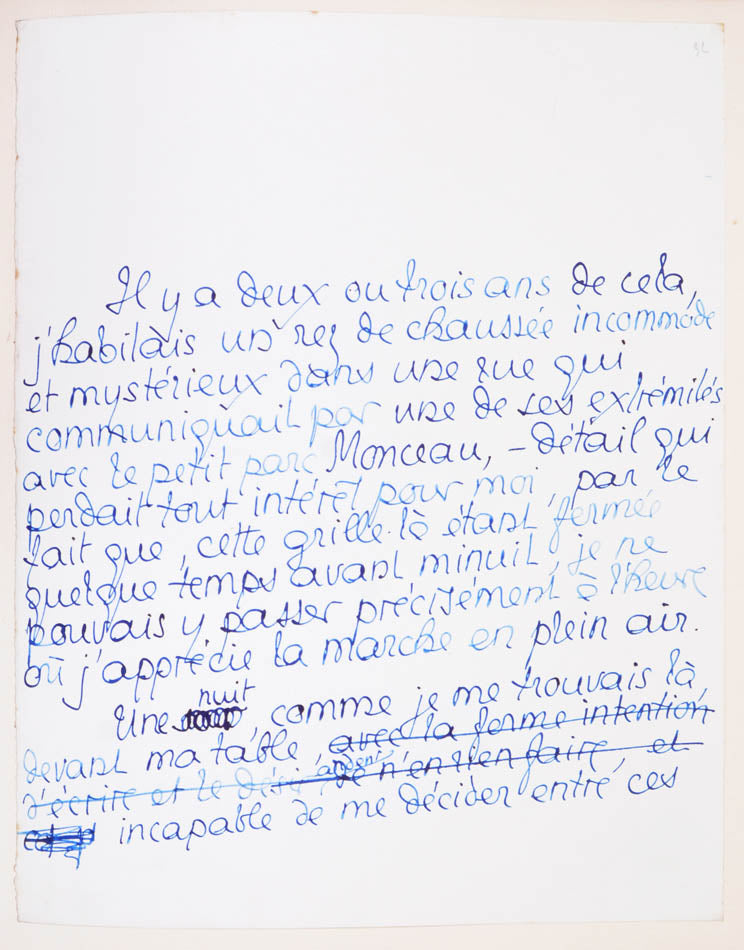 92
Il y a deux ou trois ans de cela,
j'habitais un rez de chaussée incommode
et mystérieux dans une rue qui
communiquait par une de ses extrémités
avec le petit parc Monceau, – détail qui
perdait tout intérêt pour moi, par le
fait que, cette grille-là étant fermée
quelque temps avant minuit, je ne
pouvais y passer précisément à l'heure
où j'apprécie la marche en plein air.
nuit
Une, comme je me trouvais là,
devant ma table, avec la ferme intention
d'écrire et le désir ardent de n'en rien faire, et
incapable de me décider entre ces